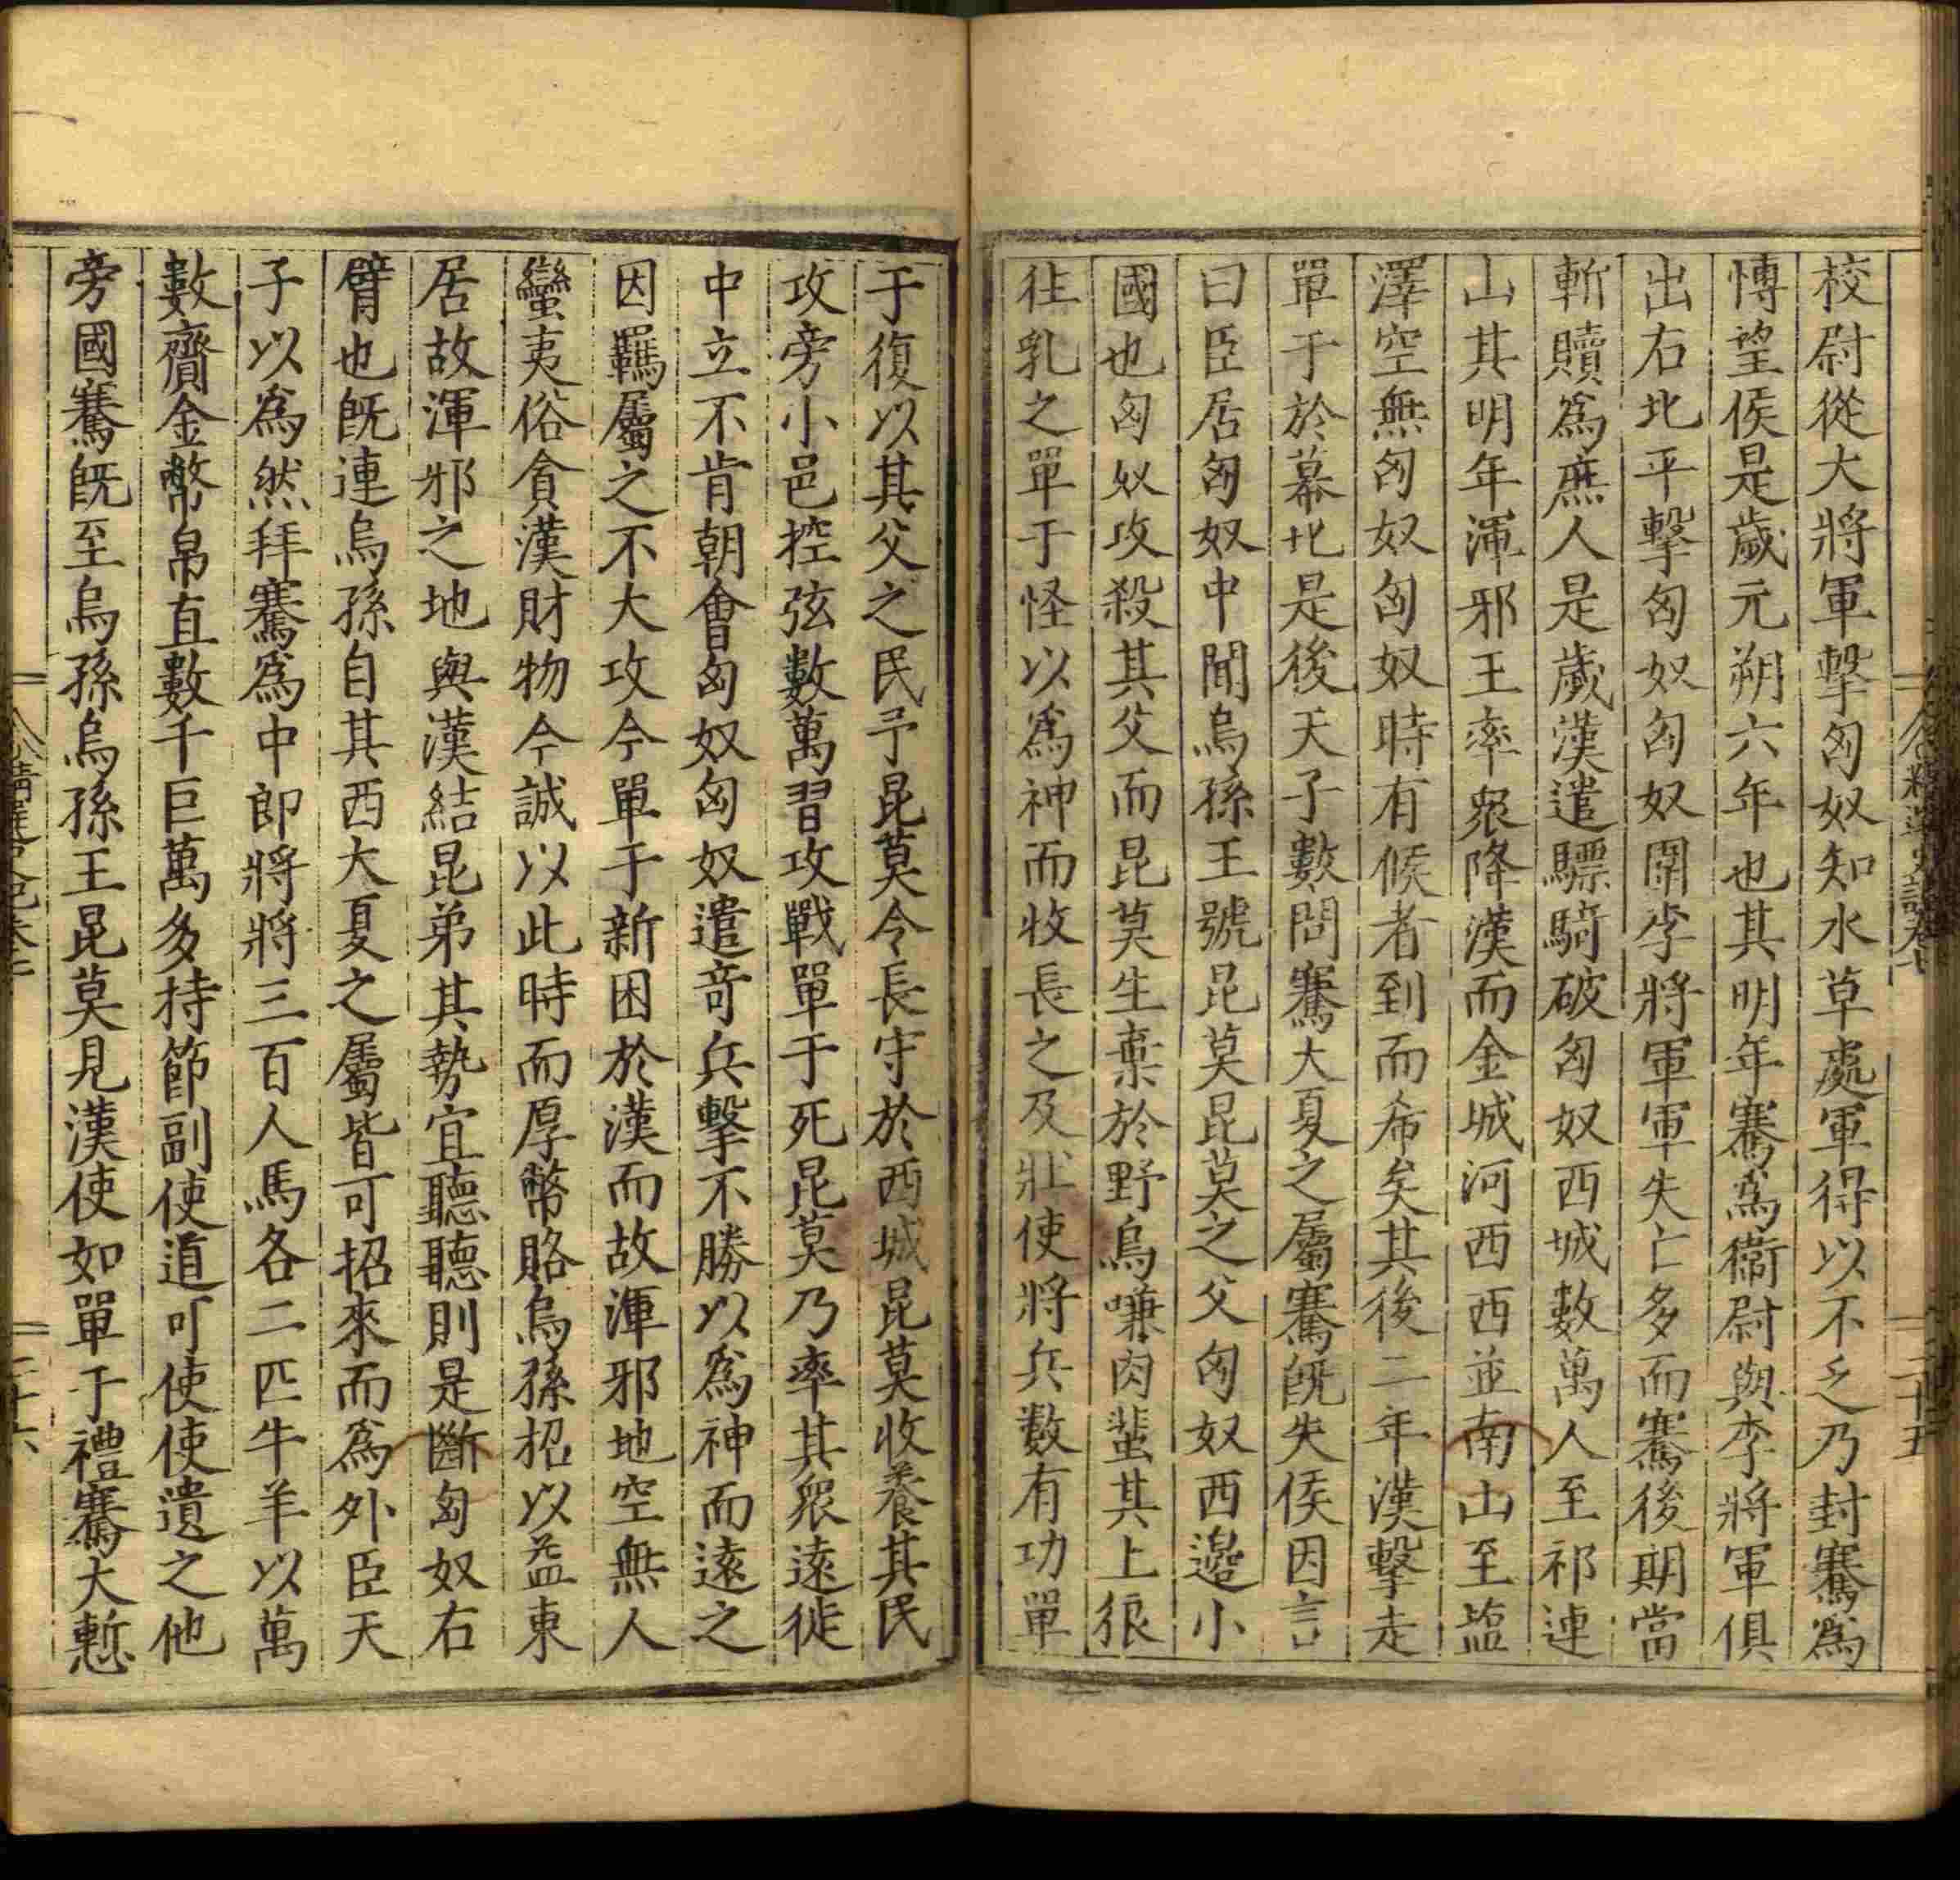 校尉從大將軍擊匈奴知水草處軍得以不乏乃封騫爲
博望侯是歲元朔六年也其明年騫爲衞尉與李將軍俱
出右北平擊匈奴匈奴圍李將軍軍失亡多而騫後期當
斬贖爲庶人是歲漢遣驃騎破匈奴西城數萬人至祁連
山其明年渾邪王率衆降漢而金城河西西並南山至塩
澤空無匈奴匈奴時有候者到而希矣其後二年漢擊走
單于於幕北是後天子數問騫大夏之屬騫既失侯因言
曰臣居匈奴中聞烏孫王號昆莫昆莫之父匈奴西邊小
國也匈奴攻殺其父而昆莫生棄於野烏嗛肉蜚其上狼
往乳之單于怪以爲神而收長之及壯使將兵数有功單
于復以其父之民予昆莫令長守於西城昆莫收養其民
攻旁小邑控弦數萬習攻戰單于死昆莫乃率其衆遠徙
中立不肯朝會匈奴匈奴遣竒兵擊不勝以爲神而遠之
因羈屬之不大攻今單于新困於漢而故渾邪地空無人
蠻夷俗貪漢財物今誠以此時而厚幣賂烏孫招以益東
居故渾邪之地與漢結昆弟其勢宜聽聽則是斷匈奴右
臂也既連烏孫自其西大夏之屬皆可招來而爲外臣天
子以爲然拜騫爲中郎將將三百人馬各二匹牛羊以萬
數齎金幣帛直數千巨萬多持節副使道可使使遺之他
旁國騫既至烏孫烏孫王昆莫見漢使如單于禮騫大慙
二十五
二十六